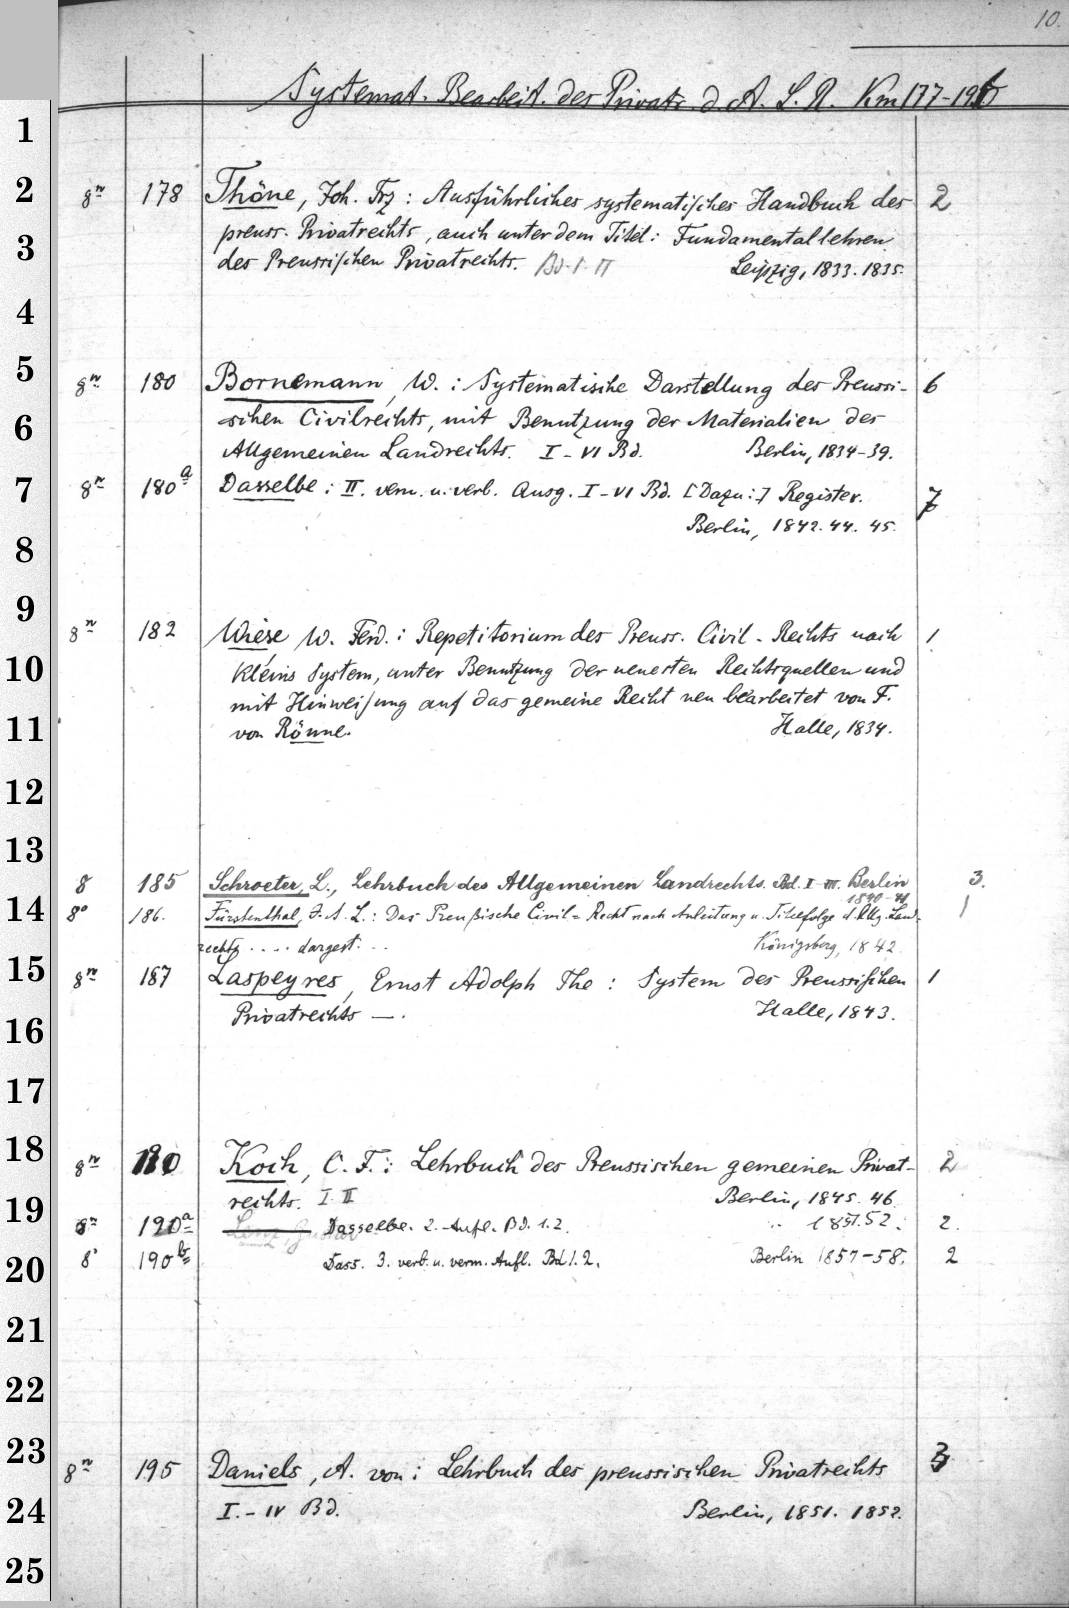 10.
Systemat. Bearbeit. des Privatr. d. A. L. R. Km 177-196
1
2
3
4
5
6
7
8
9
10
11
12
13
14
15
16
17
18
19
20
21
22
23
24
25
8n 178 Thöne, Joh. Frz: Ausführliches systematisches Handbuch des 2
preuss. Privatrechts, auch unter dem Titel: Fundamentallehren
des Preussischen Privatrechts. Bd. I. II Leipzig, 1833. 1835.
8n 180 Bornemann, W.: Systematische Darstellung des Preussi- 6
schen Civilrechts, mit Benutzung der Materialien des
Allgemeinen Landrechts. I - VI Bd. Berlin, 1834-39.
8n 180a Dasselbe: II. verm. u. verb. Ausg. I - VI Bd. [Dazu:] Register. 7
Berlin, 1842. 44. 45.
8n 182 Wiese, W. Ferd.: Repetitorium des Preuss. Civil-Rechts nach 1
Kleins System, unter Benutzung der neuesten Rechtsquellen und
mit Hinweisung auf das gemeine Recht neu bearbeitet von F.
von Rönne. Halle, 1834.
8 185 Schroeter, L., Lehrbuch des Allgemeinen Landrechts. Bd. I-III. Berlin 3.
1840-41
8o 186. Fürstenthal, J. A. L.: Das Preußische Civil=Recht nach Anleitung u. Titelfolge d. Allg. Lan- 1
rechts .... dargest. .. Königsberg, 1842.
8n 187 Laspeyres, Ernst Adolph Theo: System des Preussischen 1
Privatrechts —. Halle, 1843.
8n 190 Koch, C. F.: Lehrbuch des Preussischen gemeinen Privat- 2
rechts. I. II Berlin, 1845. 46.
8n 190a Dasselbe. 2. Aufl. Bd. 1. 2. " 1851.52. 2.
8' 190b Dass. 3. verb. u. verm. Aufl. Bd 1. 2. Berlin 1857-58. 2
8n 195 Daniels, A. von: Lehrbuch des preussischen Privatrechts 3
I. - IV Bd. Berlin, 1851. 1852.